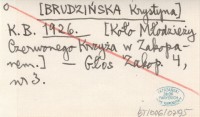 o [BRUDZIŃSKA Krystyna]
K.B. 1926. [Koło Młodzieży
Czerwonego Krzyża w Zakopa-
nem.] — Głos Zakop. 4,
nr 3.